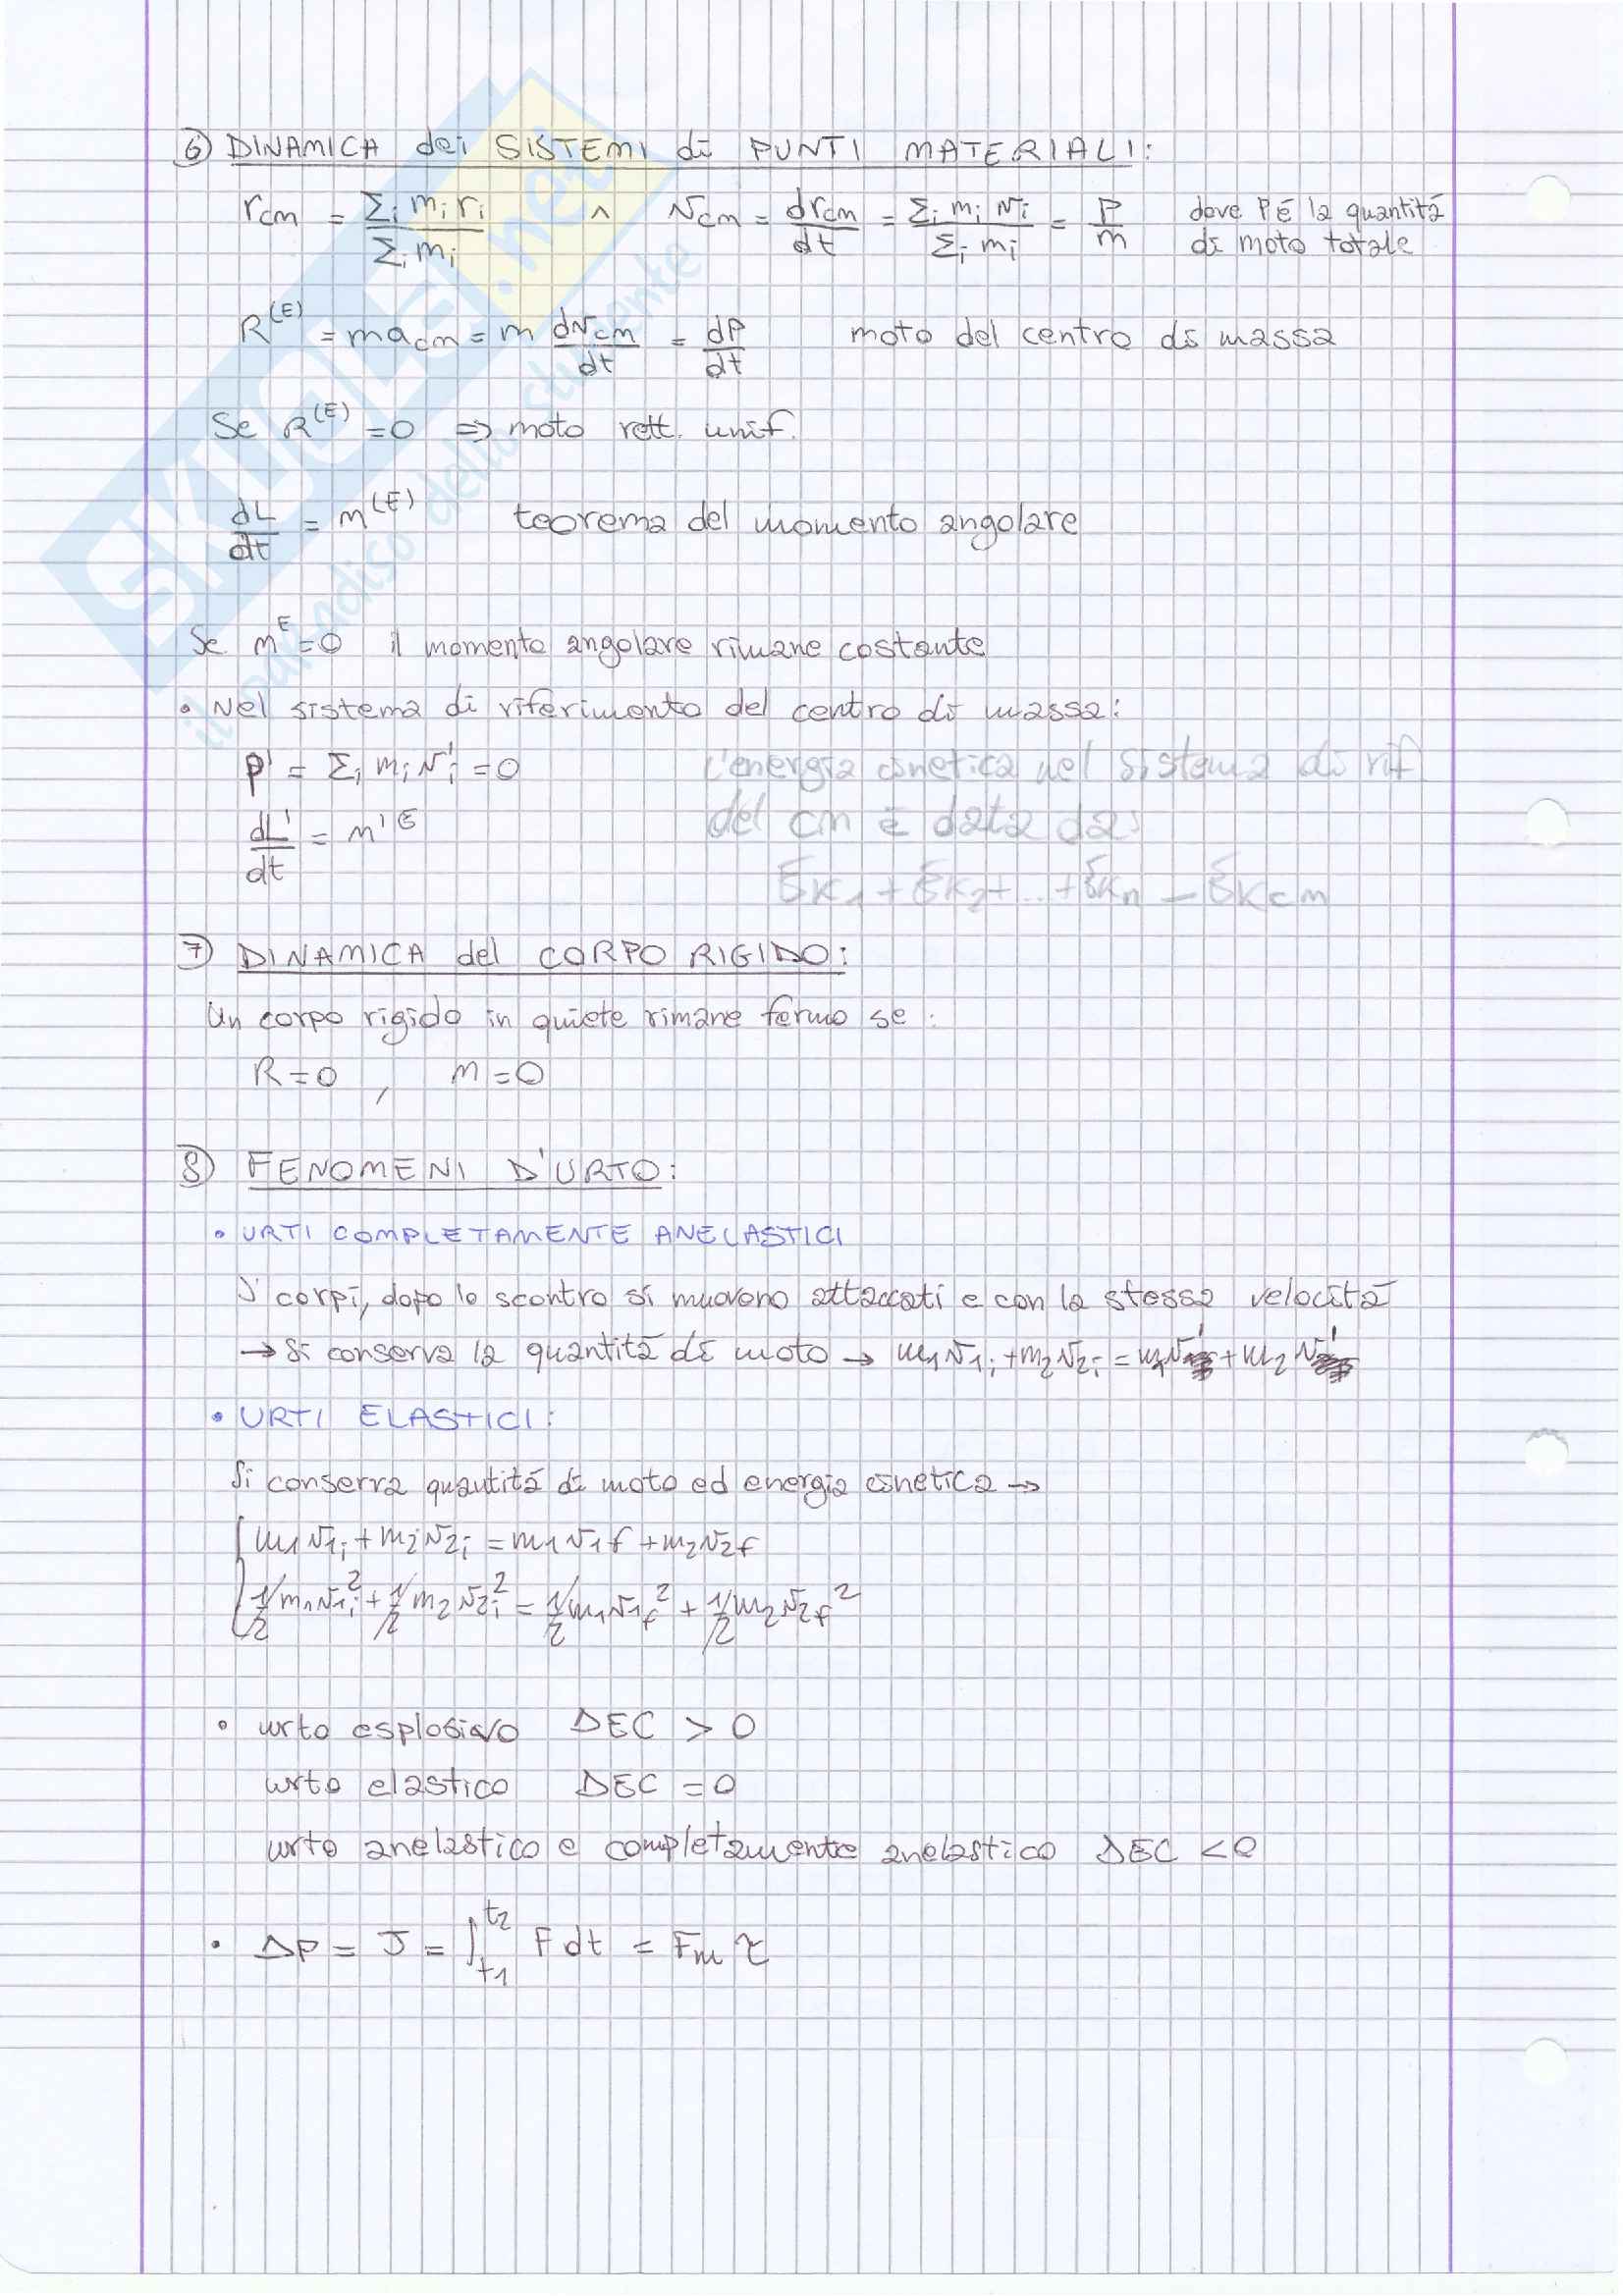 6) DINAMICA dei SISTEMI di PUNTI MATERIALI:
rcm = Σi mi ri / Σi mi ∧ vcm = drcm/dt = Σi mi vi / Σi mi = P/m dove P é la quantità
di moto totale
R(E) = macm = m dvcm/dt = dP/dt moto del centro di massa
Se R(E) = 0 ⇒ moto rett. unif.
dL/dt = M(E) teorema del momento angolare
Se ME = 0 il momento angolare rimane costante
• Nel sistema di riferimento del centro di massa:
P' = Σi mi v'i = 0 L'energia cinetica nel sistema di rif
del cm è data da:
dL'/dt = M'E
Ek1 + Ek2 + ... + Ekn - Ekcm
7) DINAMICA del CORPO RIGIDO:
Un corpo rigido in quiete rimane fermo se:
R = 0 , M = 0
8) FENOMENI D'URTO:
• URTI COMPLETAMENTE ANELASTICI
I corpi, dopo lo scontro si muovono attaccati e con la stessa velocità
→ Si conserva la quantità di moto → m1v1i + m2v2i = m1v' + m2v'
• URTI ELASTICI:
Si conserva quantità di moto ed energia cinetica →
{ m1v1i + m2v2i = m1v1f + m2v2f
1/2 m1v1i² + 1/2 m2v2i² = 1/2 m1v1f² + 1/2 m2v2f²
• urto esplosivo ΔEC > 0
urto elastico ΔEC = 0
urto anelastico e completamente anelastico ΔEC < 0
• ΔP = J = ∫t1t2 F dt = Fm τ
SKUOLA.net
il paradiso dello studente